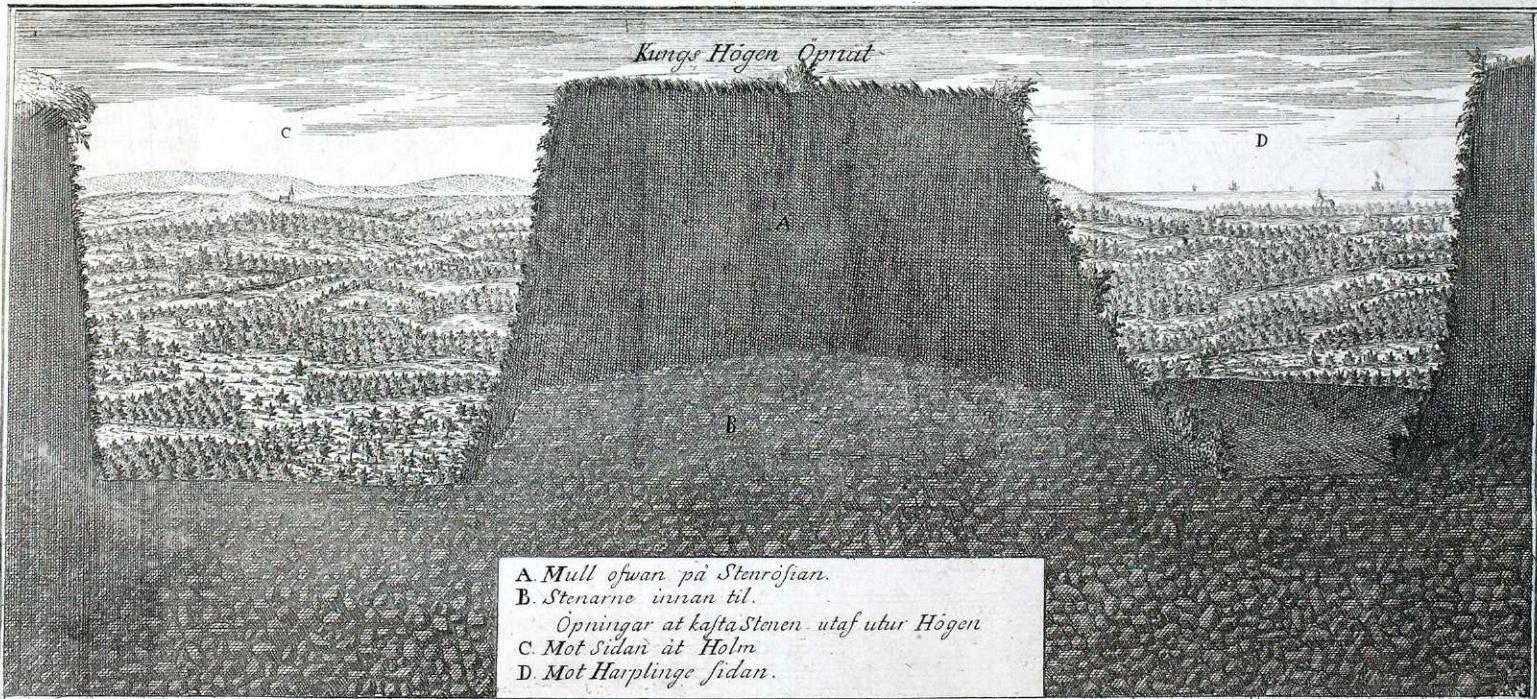 Kungs Högen Öpnat
C
D
A
B
A. Mull ofwan på Stenrösian.
B. Stenarne innan til.
Öpningar at kasta Stenen utaf utur Högen
C. Mot Sidan åt Holm
D. Mot Harplinge sidan.